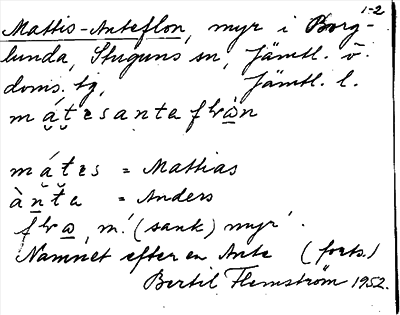 1-2
Mattis-Anteflon, myr i Borg-
lunda, Stuguns sn, Jämtl. ö.
doms. tg, Jämtl. l.
mátesantaflòn
mátes = Mattias
ànta = Anders
flo, m. (sank) myr.
Namnet efter en Ante (forts.)
Bertil Flemström 1952.